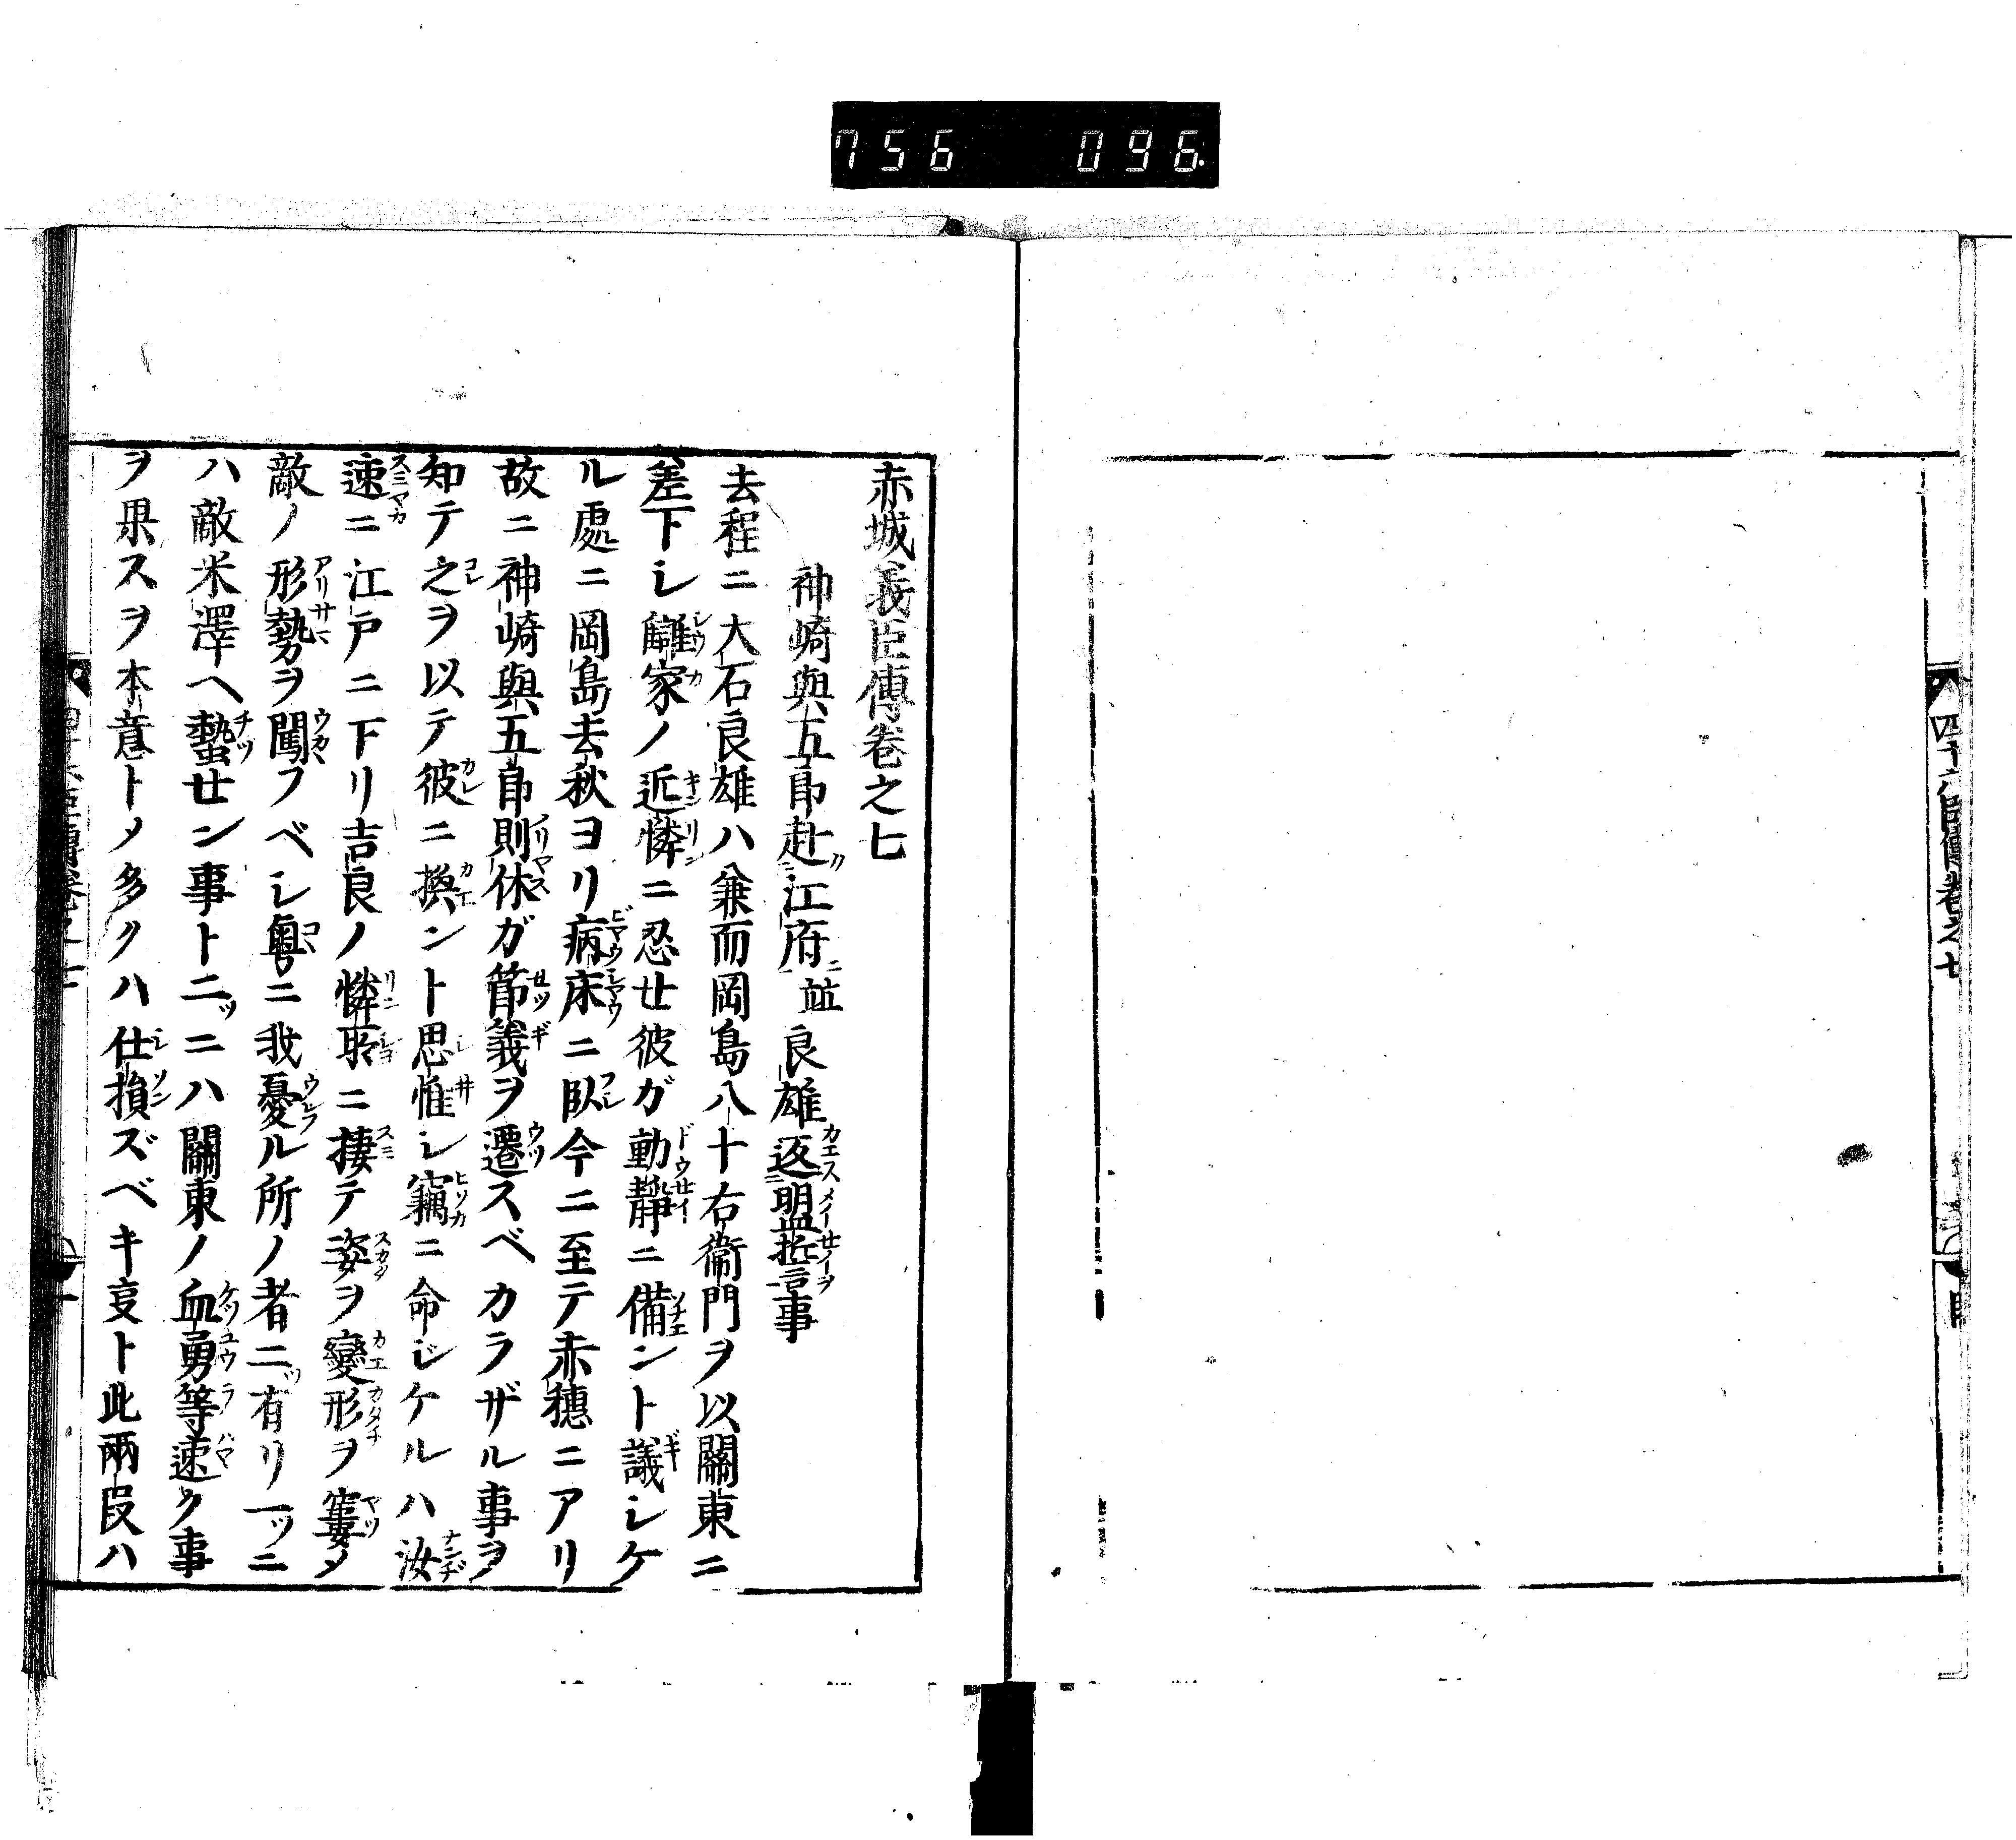 756 096
四十六臣傳卷之七
赤城義臣傳卷之七
神崎與五郎赴江府並良雄返盟誓事
去程ニ大石良雄ハ兼而岡島八十右衞門ヲ以關東ニ
差下シ讎家ノ近憐ニ忍セ彼ガ動靜ニ備ント議シケ
ル處ニ岡島去秋ヨリ病床ニ臥今ニ至テ赤穗ニアリ
故ニ神崎與五郎則休ガ節義ヲ遷スベカラザル事ヲ
知テ之ヲ以テ彼ニ換ント思惟シ竊ニ命ジケルハ汝
速ニ江戸ニ下リ吉良ノ憐聚ニ棲テ姿ヲ變形ヲ窶メ
敵ノ形勢ヲ闖フベシ粤ニ我憂ル所ノ者二ッ有リ一ッニ
ハ敵米澤ヘ蟄セン事ト二ッニハ關東ノ血勇等速ク事
ヲ果スヲ本意トメ多クハ仕損ズベキ叓ト此兩段ハ